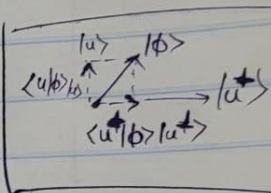 |u> |ϕ>
<u|ϕ>|u> |u*>
<u*|ϕ>|u*>